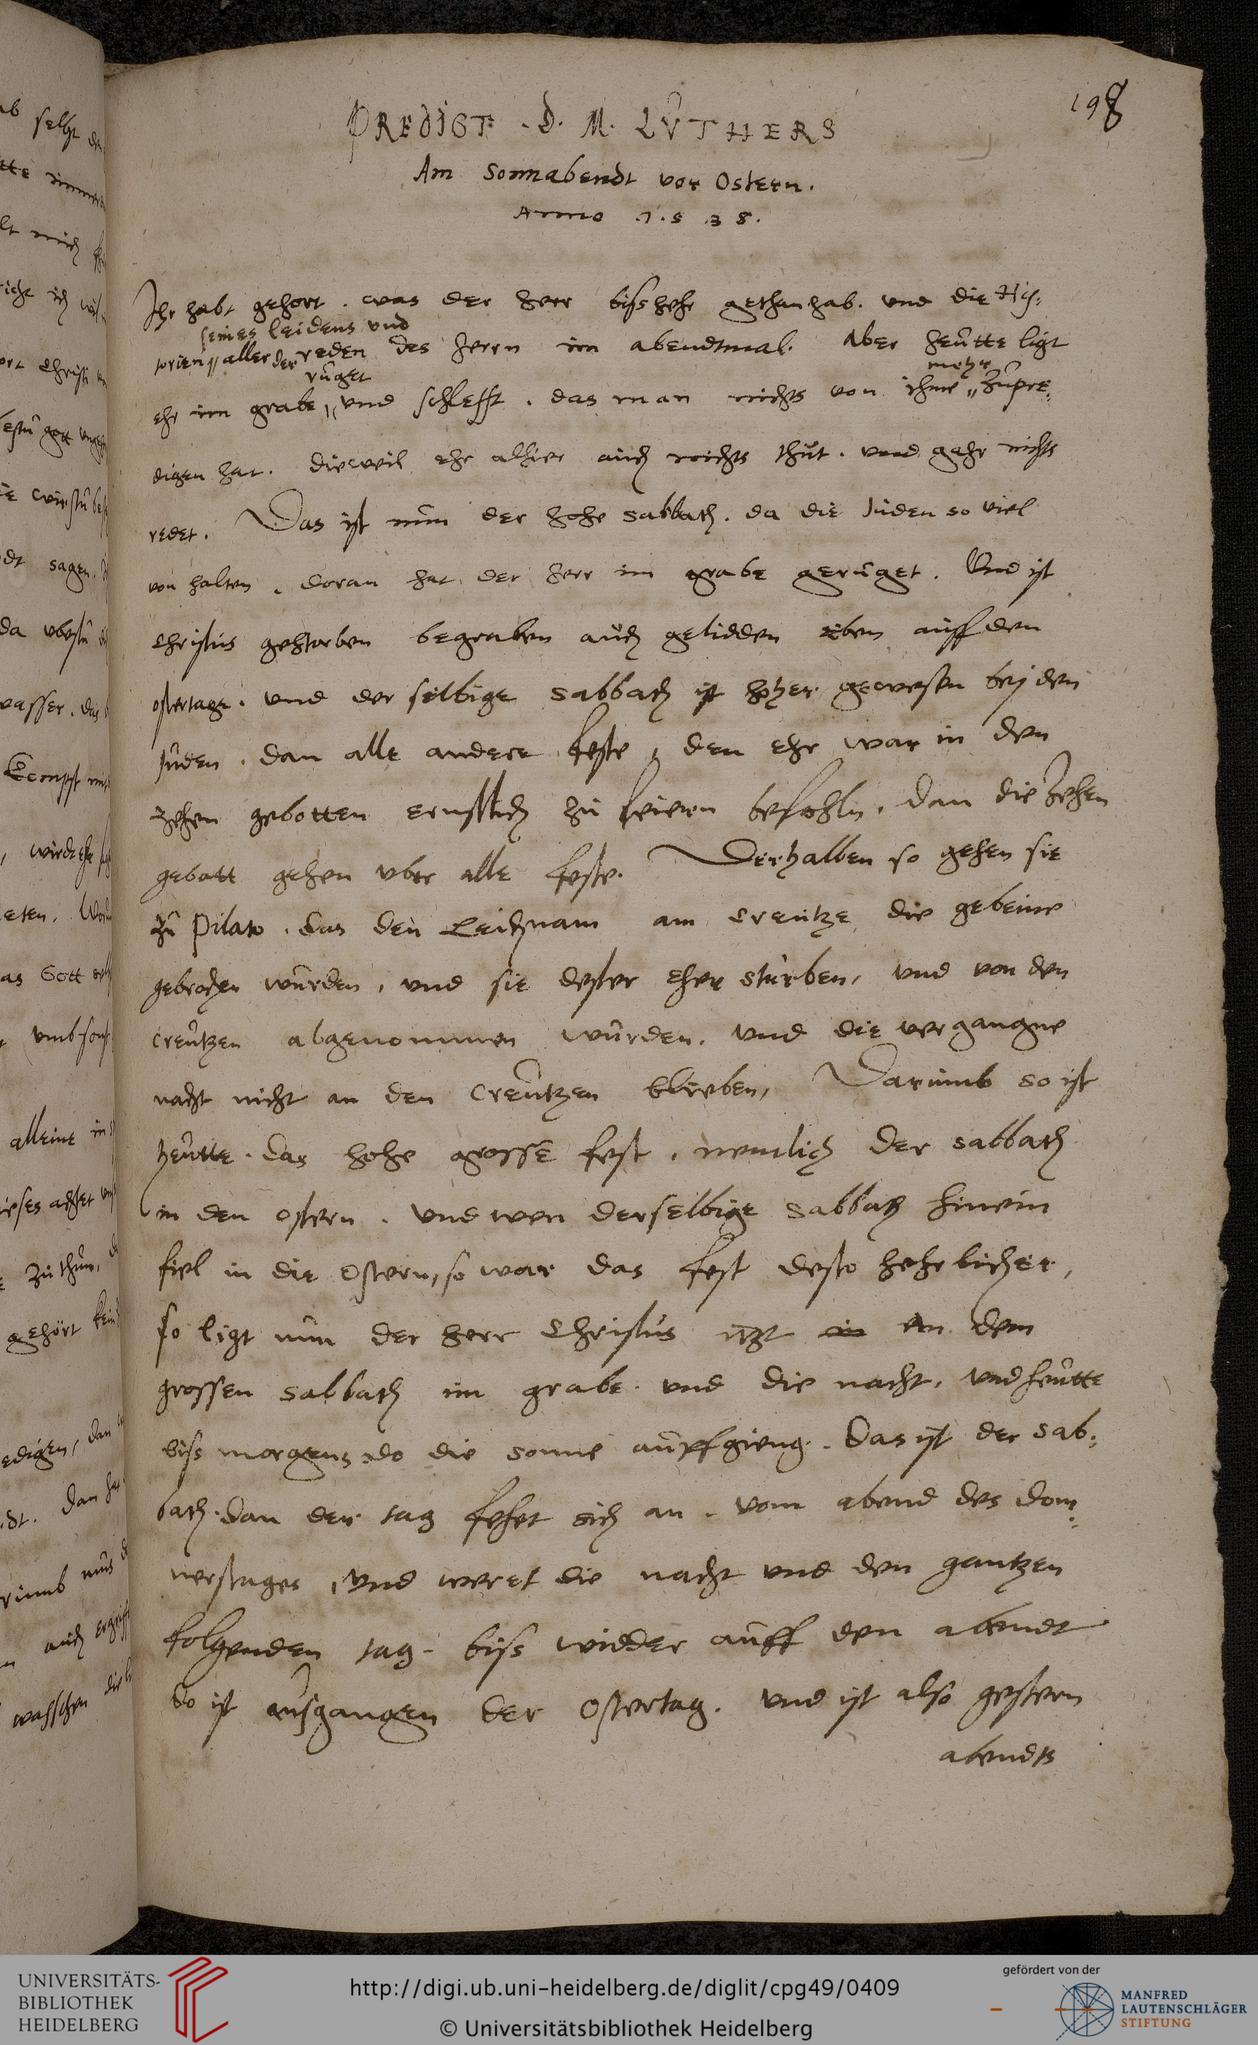 198
PREDIGT. D. M. LVTHERS
Am Sonnabendt vor Ostern.
Anno .1.5.38.
Ihr habt gehort. was der herr bisshehr gethan hab. und die His:
seines leidens und
torien aller der reden des herrn im abendtmal. Aber heutte ligt
ruget mehr
ehr im grabe, und schlefft. das man nichts von ihme zu pre:
digen hat. dieweil ehr alhier auch nichts thut. und gahr nichts
redet. Das ist nun der hohe sabbath. da die Juden so viel
von halten, doran hat der herr im grabe geruget. Und ist
Christus gestorben begraben auch gelidden eben auff den
ostertage. und der selbige sabbath ist hoher gewesen bej den
Juden. dan alle andere feste, den ehr war in den
zehen gebotten ernstlich zu feiern befohln. dan die zehen
gebott gehen uber alle feste. Derhalben so gehen sie
zu Pilato. das den Leichnam am creutze die gebeine
gebrochen wurden, und sie dester eher sturben, und von den
creutzen abgenommen wurden. und die vergangne
nacht nicht an den creutzen blieben, Darumb so ist
heutte. das hohe grosse fest, nemlich der sabbath
in den ostern. und wen derselbige sabbath hinein
fiel in die ostern, so war das fest desto hehrlicher,
so ligt nun der herr Christus itzt in dem
grossen sabbath im grabe. und die nacht. und heutte
biss morgens do die sonne auffgieng. Das ist der sab:
bath. dan der tag fehet sich an. vom abend des don:
nerstages, und weret die nacht und den gantzen
folgenden tag. biss widder auff den abendt
do ist ausgangen der Ostertag. und ist also gestern
abendts
UNIVERSITÄTS-
BIBLIOTHEK
HEIDELBERG
http://digi.ub.uni-heidelberg.de/diglit/cpg49/0409
© Universitätsbibliothek Heidelberg
gefördert von der
MANFRED
LAUTENSCHLÄGER
STIFTUNG